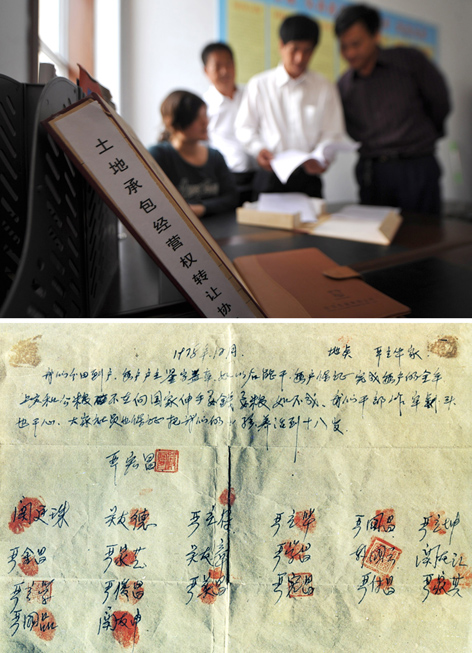 土地承包经营权转让协
1978年12月 地点 严立华家
我们分田到户，每户户主签字盖章，如以后能干，每户保证完成每户的全年
上交和公粮，不在向国家伸手要钱要粮，如不成，我们干部作牢刹头
也干心，大家社员也保证把我们的小孩养活到十八岁
严宏昌
关廷珠 关友德 严立符 严立华 严国昌 严立坤
严金昌 严家芝 关友章 严学昌 韩国云 关友江
严立学 严俊昌 严美昌 严宏昌 严付昌 严家其
严国品 关友申